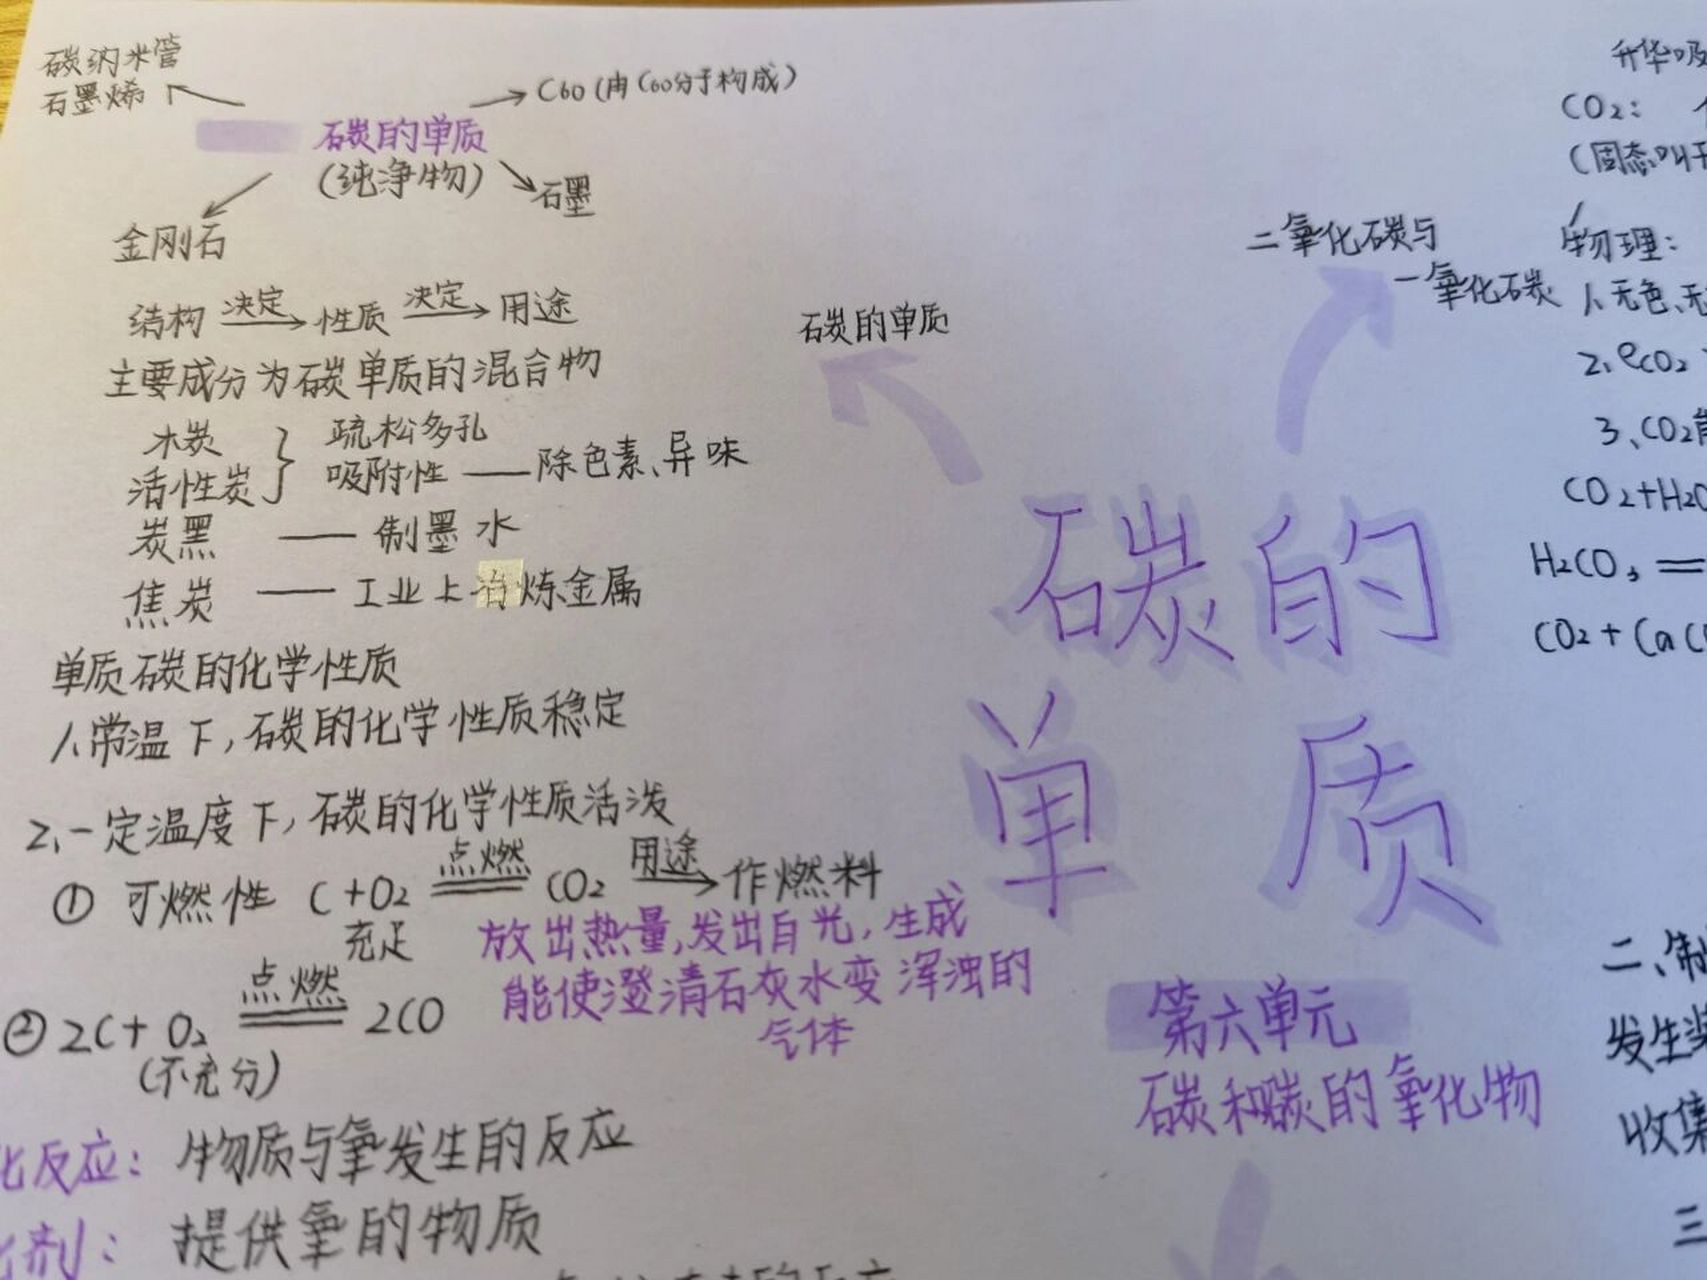 碳纳米管
石墨烯
C60(由C60分子构成)
碳的单质
(纯净物)
石墨
金刚石
结构 决定 性质 决定 用途
主要成分为碳单质的混合物
木炭
活性炭
疏松多孔
吸附性 —— 除色素、异味
炭黑 —— 制墨水
焦炭 —— 工业上冶炼金属
单质碳的化学性质
1、常温下,碳的化学性质稳定
2、一定温度下,碳的化学性质活泼
① 可燃性 C+O2 点燃 CO2 用途 作燃料
充足
放出热量,发出白光,生成
能使澄清石灰水变浑浊的
气体
② 2C+O2 点燃 2CO
(不充分)
化反应: 物质与氧发生的反应
剂: 提供氧的物质
碳的单质
二氧化碳与
一氧化碳
碳的
单质
第六单元
碳和碳的氧化物
升华吸
CO2:
(固态叫干
物理:
1、无色、无
2、ρCO2
3、CO2能
CO2+H2O
H2CO3 =
CO2+Ca(
二、制
发生装
收集
三